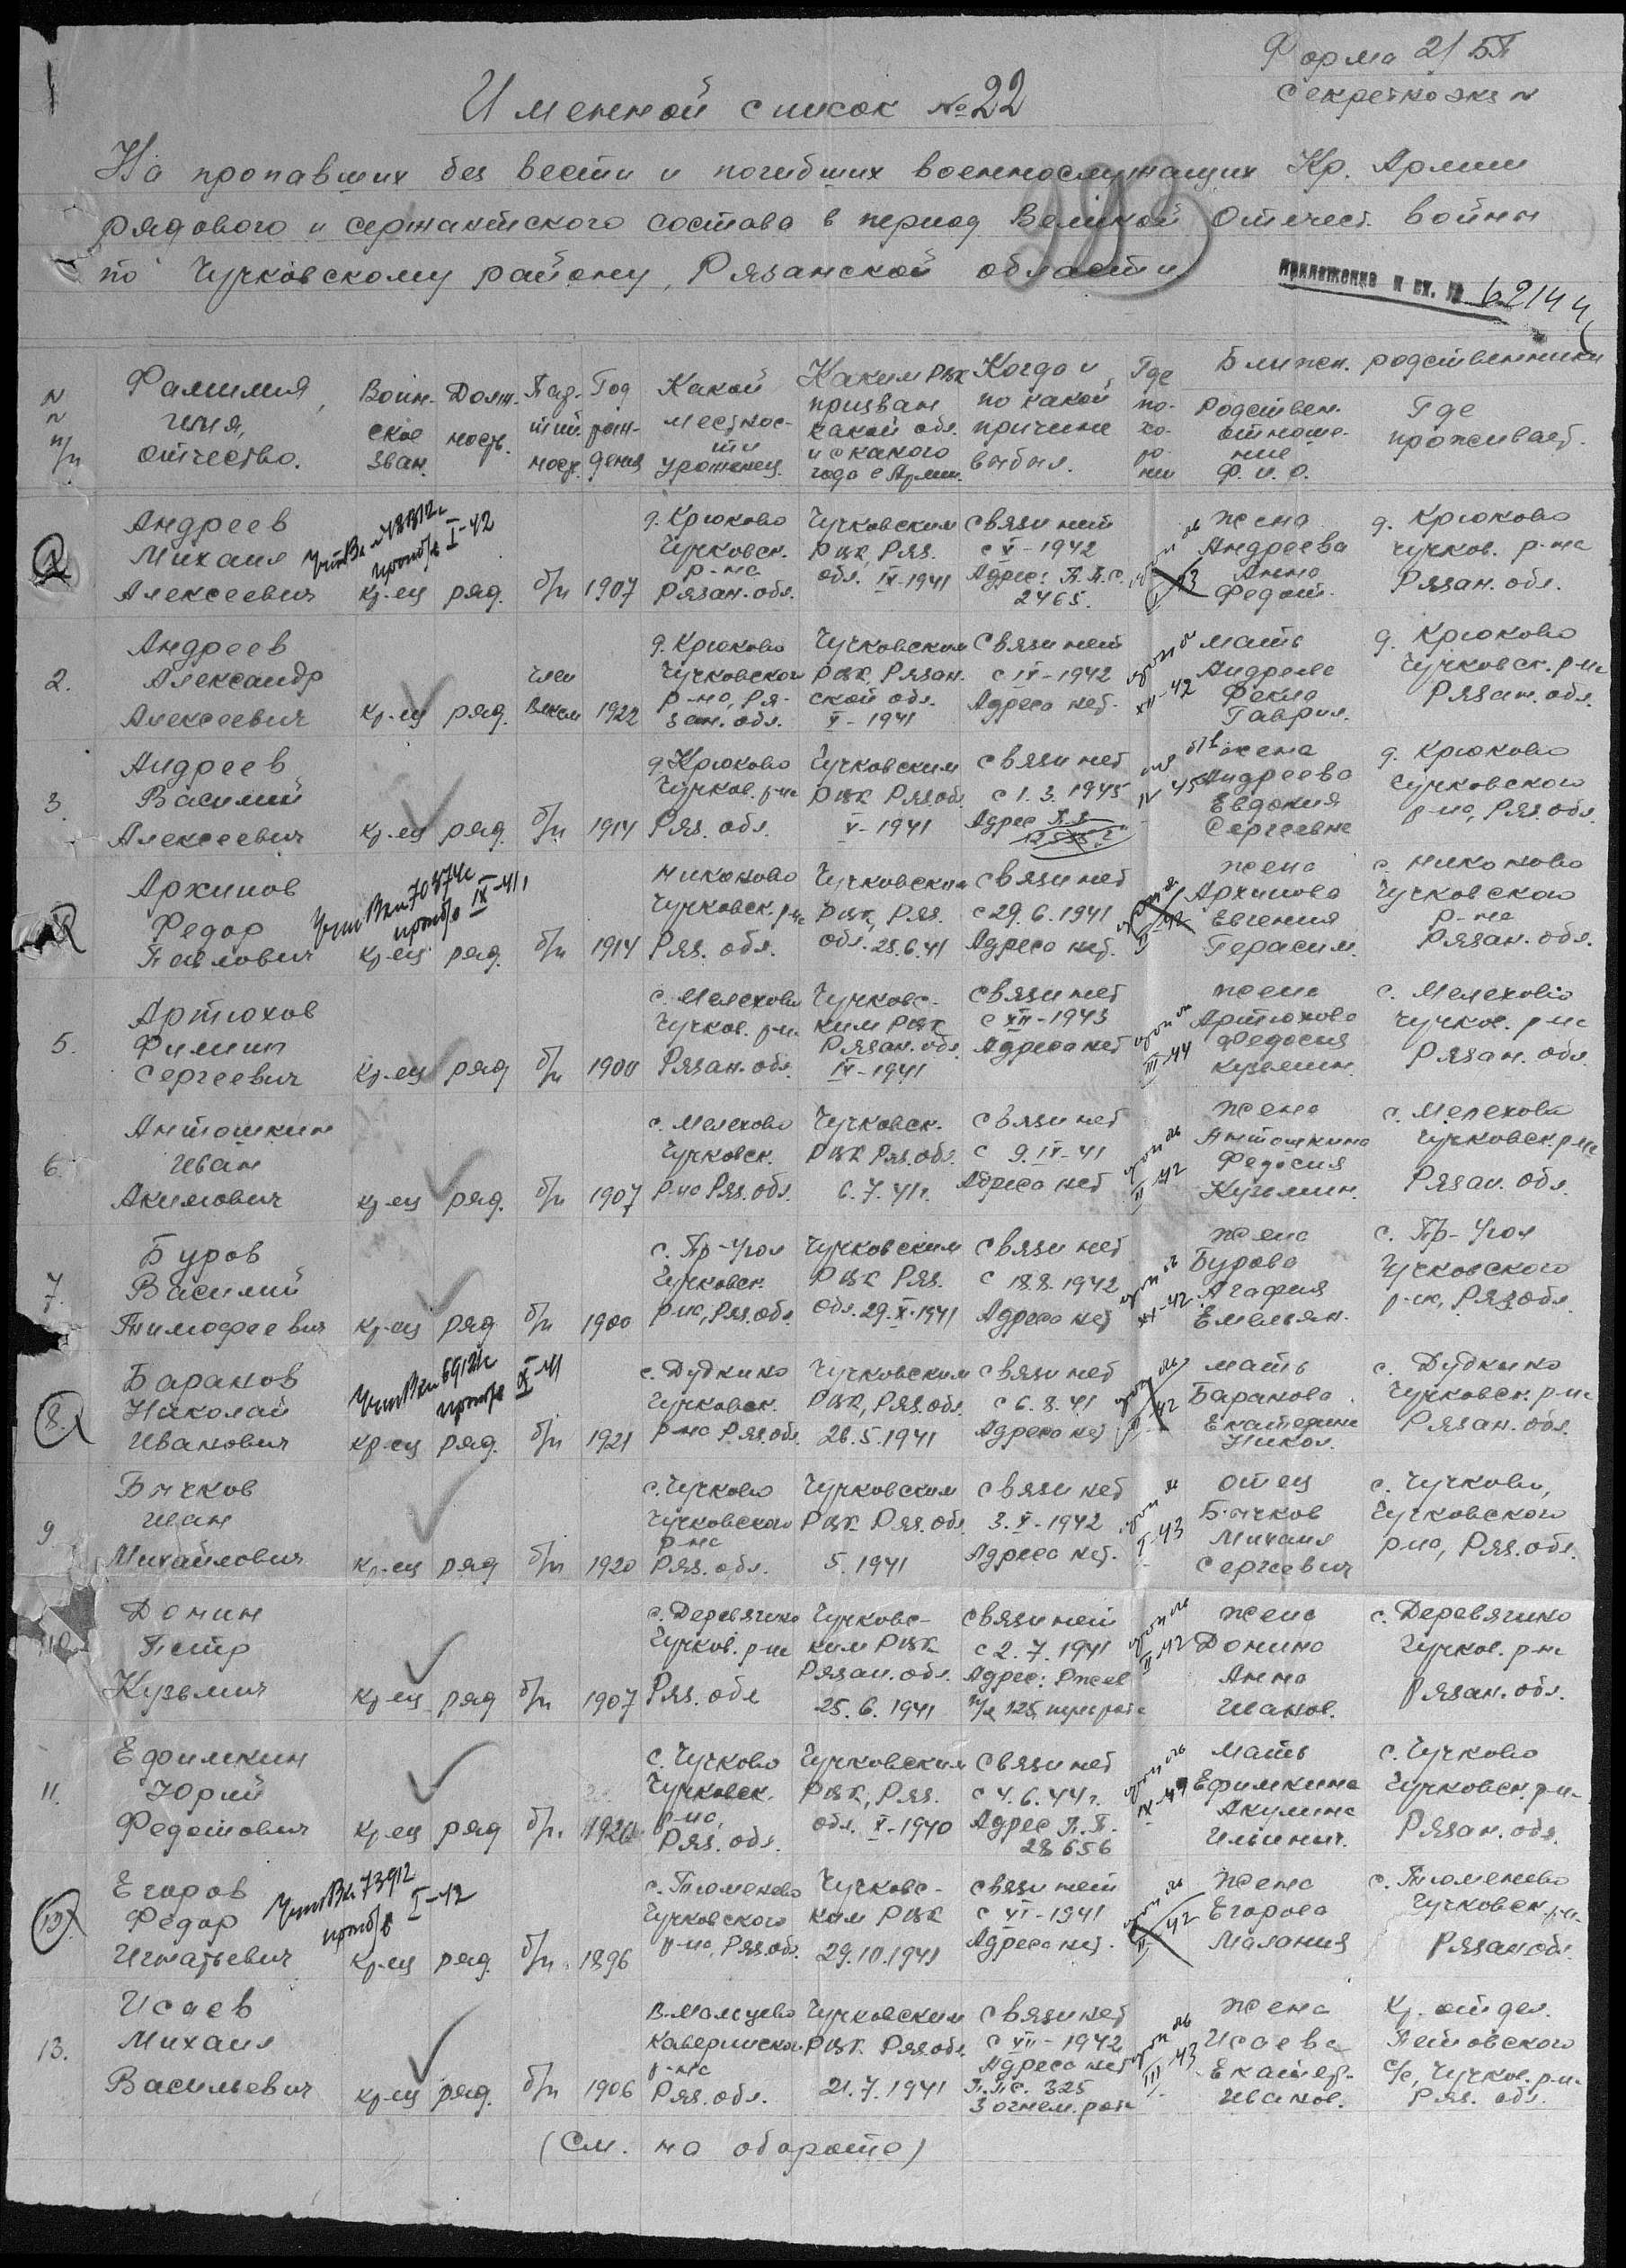 Форма 2/БП
Секретно экз N
Именной список №22
На пропавших без вести и погибших военнослужащих Кр. Армии
рядового и сержантского состава в период Великой Отечест. войны
по Чучковскому району, Рязанской области
приложение к вх. № 62144
N п/п
Фамилия, имя, отчество.
Воин. ское зван.
Долж. ность.
Парт. ность.
Год рождения
Какой местности уроженец.
Каким РВК призван какой обл. и с какого года в Армии.
Когда и по какой причине выбыл.
Где похоронен
Ближ. родственники
Родствен. отноше- ние Ф. И. О.
Где проживает.
1
Андреев Михаил Алексеевич
кр-ец ряд. б/п 1907
д. Крюково Чучковск. р-на Рязан. обл.
Чучковским РВК, Ряз. обл. IX-1941
Связи нет с V-1942 Адрес: П.П.С. 2465.
жена Андреева Анна Федот.
д. Крюково Чучков. р-на Рязан. обл.
2.
Андреев Александр Алексеевич
кр-ец ряд. член Влксм 1922
д. Крюково Чучковского р-на, Ря- зан. обл.
Чучковским РВК, Рязан. ской обл. X-1941
Связи нет с IX-1942 Адреса нет.
XII-42
мать Андреева Фекла Гаврил.
д. Крюково Чучковск. р-на Рязан. обл.
3.
Андреев Василий Алексеевич
кр-ец ряд. б/п 1914
д. Крюково Чучков. р-на Ряз. обл.
Чучковским РВК Ряз.обл. V-1941
связи нет с 1.3.1945 Адрес П.П.
IV 45
жена Андреева Евдокия Сергеевна
д. Крюково Чучковского р-на, Ряз. обл.
Архипов Федор Павлович
кр-ец ряд. б/п 1914
Никоново Чучковск. р-на Ряз. обл.
Чучковским РВК, Ряз. обл. 25.6.41
Связи нет с 29.6.1941 Адреса нет.
жена Архипова Евгения Герасим.
с. Никоново Чучковского р-на Рязан. обл.
5.
Артюхов Филипп Сергеевич
кр-ец ряд б/п 1900
с. Мелехово Чучков. р-на Рязан. обл.
Чучковс- ким РВК Рязан. обл. IX-1941
связи нет с XII-1943 Адреса нет
III-44
жена Артюхова Федосия Кузьмин.
с. Мелехово Чучков. р-на Рязан. обл.
6.
Антошкин Иван Акимович
кр-ец ряд. б/п 1907
с. Мелехово Чучковск. р-на Ряз. обл.
Чучковск. РВК Ряз.обл. 6.7.41г.
связи нет с 9.IX-41 Адреса нет
II 42
жена Антошкина Федосия Кузьмин.
с. Мелехово Чучковск. р-на Рязан. обл.
7.
Буров Василий Тимофеевич
кр-ец ряд б/п 1900
с. Пр-Угол Чучковск. р-на, Ряз. обл.
Чучковским РВК Ряз. обл. 29.X-1941
связи нет с 18.8.1942 Адреса нет
XI-42
жена Бурова Агафия Емельян.
с. Пр-Угол Чучковского р-на, Ряз обл.
8.
Баранов Николай Иванович
кр-ец ряд. б/п 1921
с. Дудкино Чучковск. р-на Ряз. обл.
Чучковским РВК, Ряз.обл. 28.5.1941
связи нет с 6.8.41 Адреса нет
мать Баранова Екатерина Никол.
с. Дудкино Чучковск. р-на Рязан. обл.
9
Бычков Иван Михайлович
кр-ец ряд б/п 1920
с. Чучково Чучковского р-на Ряз. обл.
Чучковским РВК Ряз. обл 5.1941
связи нет 3.X-1942 Адреса нет.
I-43
отец Бычков Михаил Сергеевич
с. Чучково, Чучковского р-на, Ряз. обл.
10
Донин Петр Кузьмич
кр-ец ряд б/п 1907
с. Деревягино Чучков. р-на Ряз. обл
Чучковс- ким РВК Рязан. обл. 25.6.1941
связи нет с 2.7.1941 Адрес: Ржев п/я 125, пуль рота
II 42
жена Донина Анна Иванов.
с. Деревягино Чучков. р-на Рязан. обл.
11.
Ефимкин Юрий Федотович
кр-ец ряд б/п.
с. Чучково Чучковск. р-на, Ряз. обл.
Чучковским РВК, Ряз. обл. X-1940
связи нет с 4.6.44г. Адрес П.П. 28656
IX-44
мать Ефимкина Акулина Ильинич.
с. Чучково Чучковск. р-на Рязан. обл.
12.
Егоров Федор Игнатьевич
кр-ец ряд. б/п. 1896
с. Тюменево Чучковского р-на, Ряз.обл.
Чучковс- ким РВК 29.10.1941
связи нет с XI-1941 Адреса нет.
жена Егорова Малания
с. Тюменево Чучковск. р-на Рязан обл.
13.
Исаев Михаил Васильевич
кр-ец ряд. б/п 1906
В-Мальцево р-на Ряз. обл.
Чучковским РВК. Ряз.обл. 21.7.1941
Связи нет с XII-1942 Адреса нет П.П.С. 325 3 огнем. рота
III 43
жена Исаева Екатер. Иванов.
Кр. отдел. с/с, Чучков. р-на Ряз. обл.
(См. на обороте)